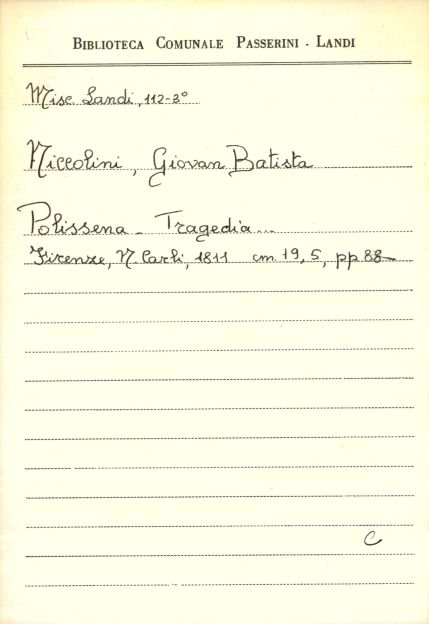 BIBLIOTECA COMUNALE PASSERINI - LANDI
Misc. Landi, 112-3°
Niccolini, Giovan Batista
Polissena - Tragedia...
Firenze, N. Carli, 1811 cm. 19,5, pp 88
C